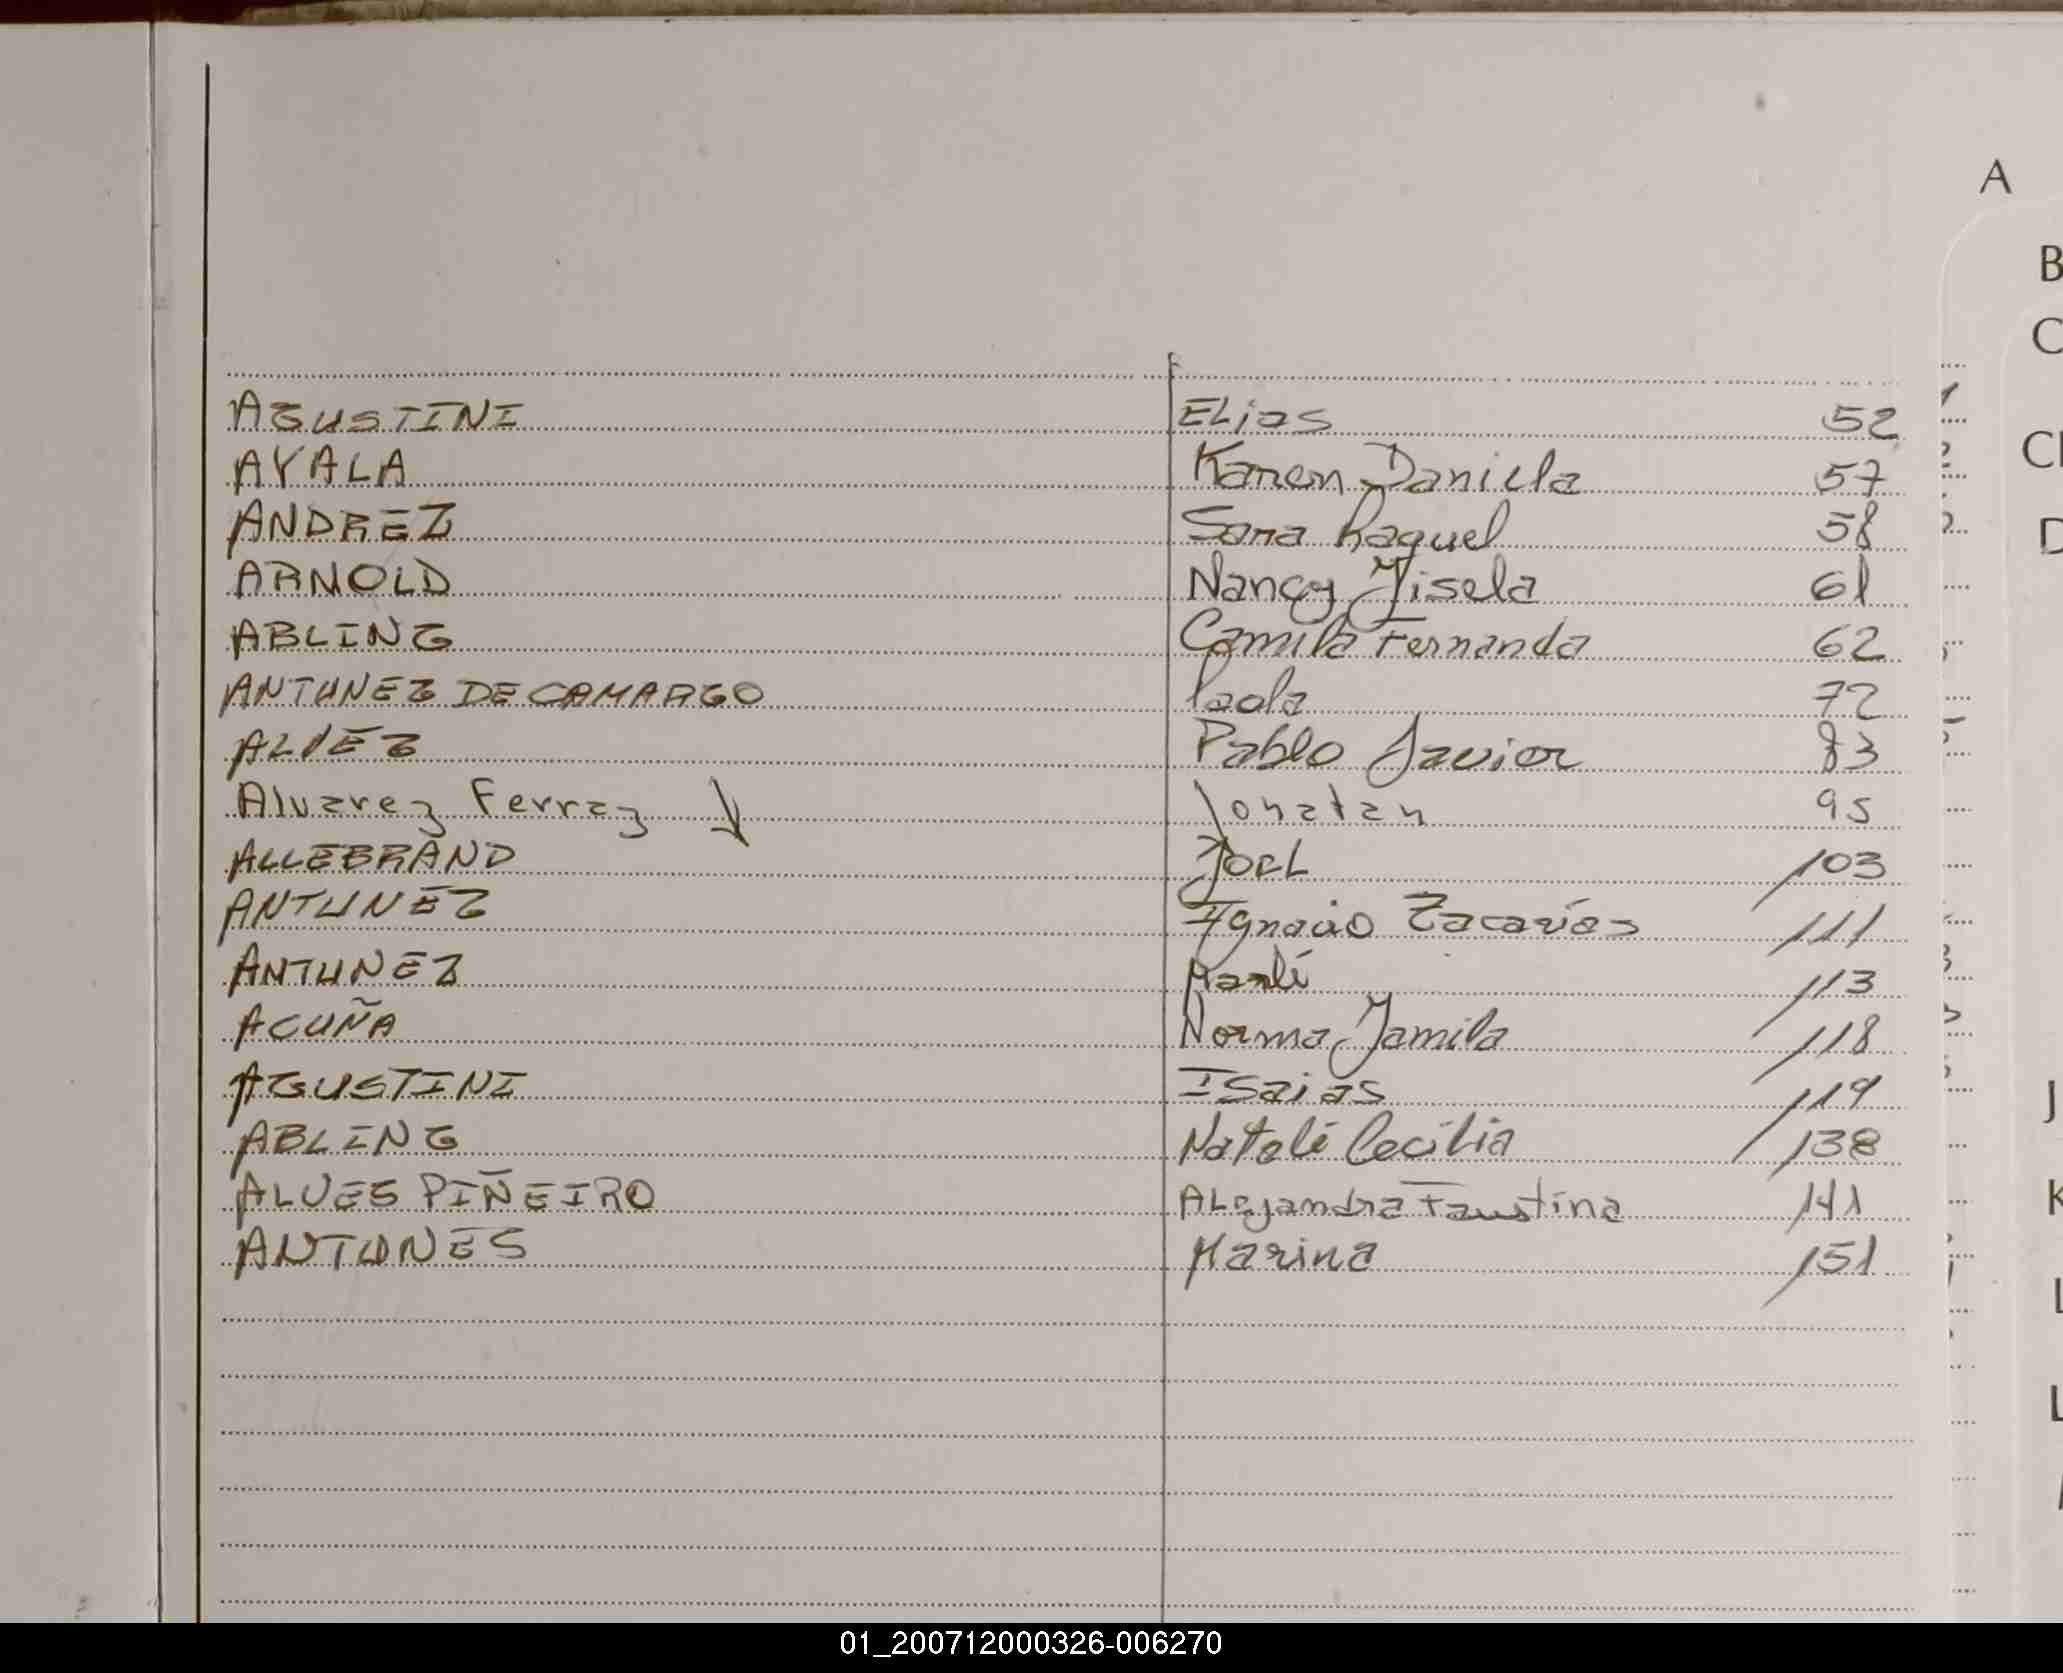 A
B
C
AGUSTINI Elias 52
AYALA Karen Daniela 57
CH
ANDREZ Sara Raquel 58
D
ARNOLD Nancy Jisela 61
ABLING Camila Fernanda 62
ANTUNEZ DE CAMARGO Paola 72
ALVEZ Pablo Javier 83
Alvarez Ferraz Jonatan 95
ALLEBRAND Joel 103
ANTUNEZ Ignacio Zacarías 111
ANTUNEZ 113
ACUÑA Norma Jamila 118
AGUSTINI Isaias 119
J
ABLING Natalí Cecilia 138
ALVES PIÑEIRO Alejandra Faustina 141
K
ANTUNES Marina 151
L
01_200712000326-006270